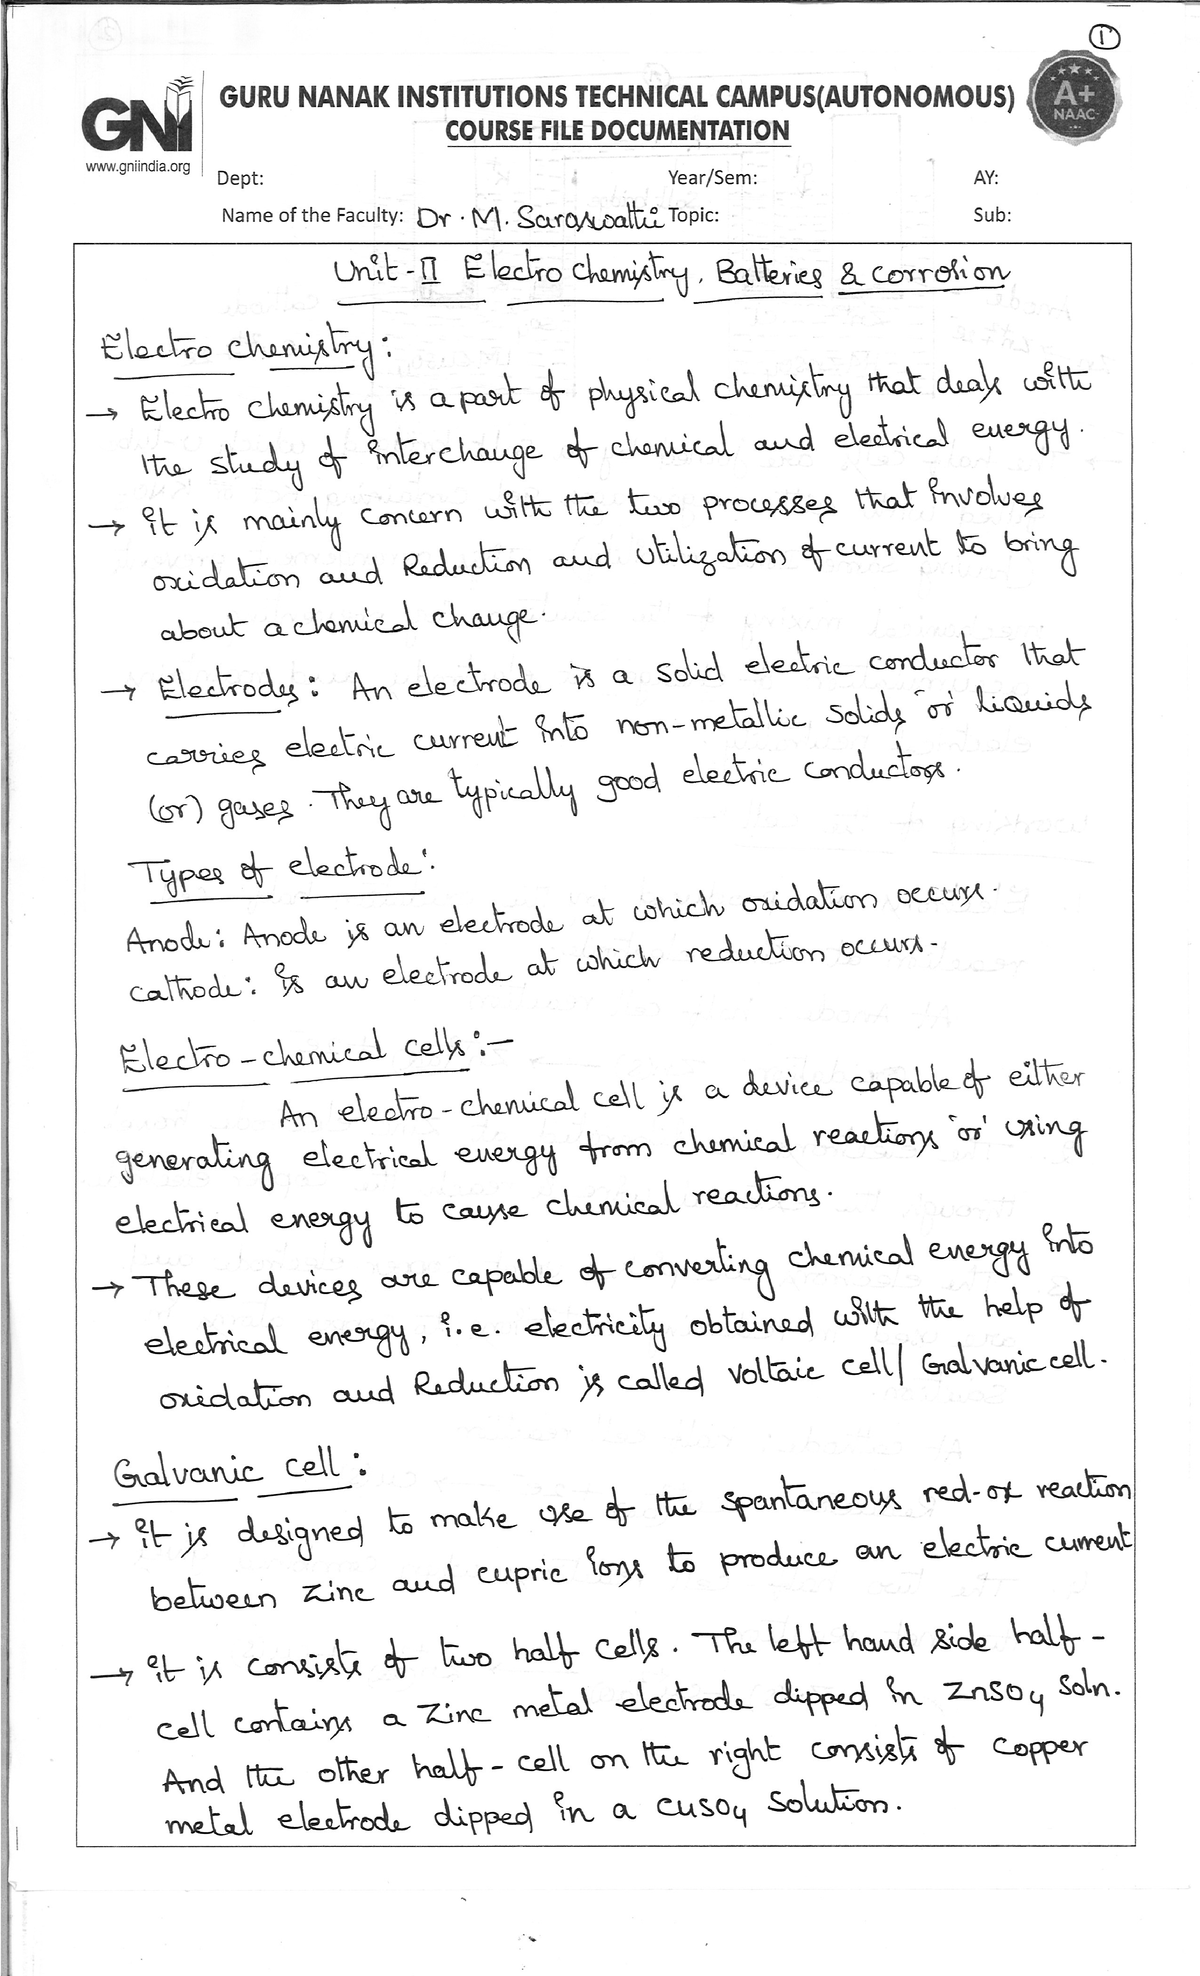 1
GNI
www.gniindia.org
GURU NANAK INSTITUTIONS TECHNICAL CAMPUS(AUTONOMOUS)
COURSE FILE DOCUMENTATION
A+
NAAC
Dept: Year/Sem: AY:
Name of the Faculty: Dr. M. Saraswathi Topic: Sub:
Unit-II Electro chemistry, Batteries & corrosion
Electro chemistry:
→ Electro chemistry is a part of physical chemistry that deals with
the study of interchange of chemical and electrical energy.
→ it is mainly concern with the two processes that involves
oxidation and Reduction and utilization of current to bring
about a chemical change.
→ Electrodes: An electrode is a solid electric conductor that
carries electric current into non-metallic solids 'or' liquids
(or) gases. They are typically good electric conductors.
Types of electrode:
Anode: Anode is an electrode at which oxidation occurs.
Cathode: is an electrode at which reduction occurs.
Electro-chemical cells:-
An electro-chemical cell is a device capable of either
generating electrical energy from chemical reactions 'or' using
electrical energy to cause chemical reactions.
→ These devices are capable of converting chemical energy into
electrical energy, i.e. electricity obtained with the help of
oxidation and Reduction is called voltaic cell/ Galvanic cell.
Galvanic cell:
→ it is designed to make use of the spantaneous red-ox reaction
between zinc and cupric ions to produce an electric current
→ it is consists of two half cells. The left hand side half-
cell contains a zinc metal electrode dipped in ZnSO4 soln.
And the other half-cell on the right consists of copper
metal electrode dipped in a CuSO4 solution.